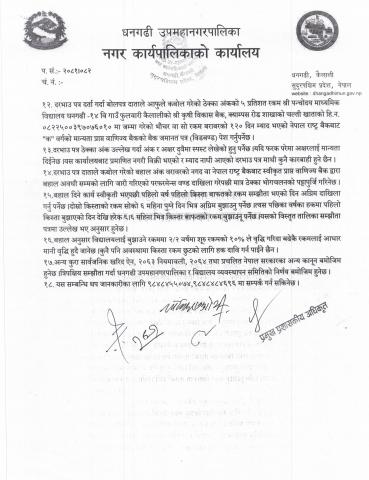 धनगढी उपमहानगरपालिका
नगर कार्यपालिकाको कार्यालय
प. सं.:- २०८१/०८२
च. नं. :-
धनगढी, कैलाली
सुदूरपश्चिम प्रदेश, नेपाल
website : dhangadhimun.gov.np
१२. दरभाउ पत्र दर्ता गर्दा बोलपत्र दाताले आफुले कबोल गरेको ठेक्का अंकको ५ प्रतिशत रकम श्री पन्चोदय माध्यमिक
विद्यालय धनगढी -१४ बि गाउँ फुलवारी कैलालीको श्री कृषी विकास बैंक, क्याम्पस रोड शाखाको चल्ती खाताको हि.न.
०८२२५००३९०७०६०१० मा जम्मा गरेको भौचर वा सो रकम बराबरको १२० दिन म्याद भएको नेपाल राष्ट्र बैंकबाट
"क" वर्गको मान्यता प्राप्त वाणिज्य बैंकको बैंक जमानत पत्र (बिडबण्ड) पेश गर्नुपर्नेछ ।
१३. दरभाउ पत्रमा ठेक्का अंक उल्लेख गर्दा अंक र अक्षर दुवैमा स्पस्ट लेखेको हुनु पर्नेछ ।यदि फरक परेमा अक्षरलाई मान्यता
दिईनेछ ।यस कार्यालयबाट प्रमाणित नगरी बिक्री भएको र म्याद नाघी आएको दरभाउ पत्र माथी कुनै कारवाही हुने छैन ।
१४. दरभाउ पत्रदाताले गरेको बहाल अंक बराबरको नगद वा नेपाल राष्ट्र बैंकबाट स्वीकृत प्राप्त वाणिज्य बैंक द्वारा
बहाल अवधी सम्मको लागि जारी गरिएको परफरमेन्स वण्ड दाखिला गरेपछी मात्र ठेक्का भोगचलनको पट्टापुर्जि गरिनेछ ।
१५. बहाल दिने कार्य स्वीकृती भएपछी पहिलो वर्ष पहिलो किस्ता वाफतको रकम सम्झौता भएको दिन अग्रिम दाखिला
गर्नु पर्नेछ ।दोस्रो किस्ताको रकम सोको ६ महिना पुग्ने दिन भित्र अग्रिम बुझाउनु पर्नेछ ।त्यस पछिका वर्षका हकमा पहिलो
किस्ता बुझाएको दिन देखि हरेक ६/६ महिना भित्र किस्ता वाफतको रकम बुझाउनु पर्नेछ ।यसको विस्तृत तालिका सम्झौता
पत्रमा उल्लेख भए अनुसार हुनेछ ।
१६. बहाल अनुसार विद्यालयलाई बुझाउने रकममा २/२ वर्षमा शुरु रकमको १०% ले वृद्धि गरिवा बढेकै रकमलाई आधार
मानी वृद्धि हुदै जानेछ ।(कुनै पनि अवस्थामा किस्ता रकम छुटको लागि हक दावि गर्न पाईने छैन ।
१७. अन्य कुरा सार्वजनिक खरिद ऐन, २०६३ नियमावली, २०६४ तथा प्रचलित नेपाल सरकारका अन्य कानून बमोजिम
हुनेछ ।त्रिपक्षिय सम्झौता गर्दा धनगढी उपमहानगरपालिका र विद्यालय व्यवस्थापन समितिको निर्णय बमोजिम हुनेछ ।
१८. यस सम्बन्धि थप जानकारीका लागि
प्रमुख प्रशासकीय अधिकृत